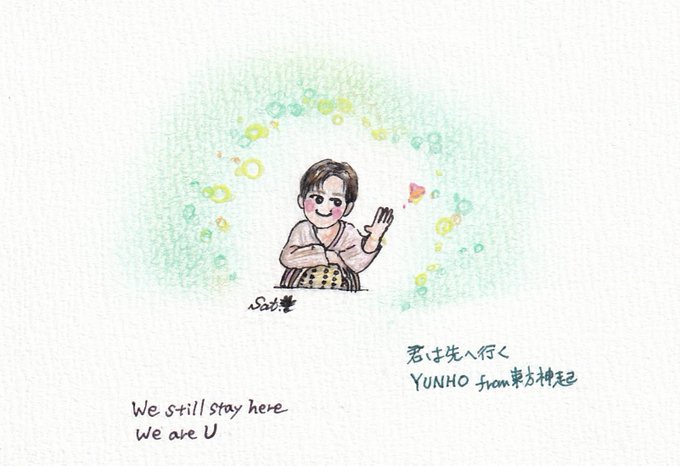 Sat.
君は先へ行く
YUNHO from東方神起
We still stay here
We are U